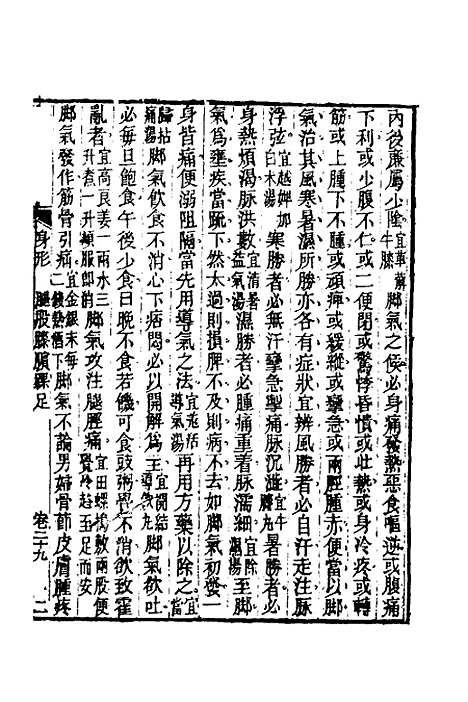 內後廉屬少陰宜萆薢牛膝脚氣之候必身痛發熱惡食嘔逆或腹痛
下利或少腹不仁或二便閉或驚悸昏憒或壯熱或身冷疼或轉
筋或上腫下不腫或頑痺或緩縱或攣急或兩脛腫赤便當以脚
氣治其風寒暑濕所勝亦各有症狀宜辨風勝者必自汗走注脉
浮弦宜越婢加白木湯寒勝者必無汗攣急掣痛脉沉澁宜牛膝丸暑勝者必
身熱煩渴脉洪數宜清暑益氣湯濕勝者必腫痛重着脉濡細宜除濕湯至脚
氣爲壅疾當䟽下然太過則損脾不及則病不去如脚氣初發一
身皆痛便溺阻隔當先用導氣之法宜導氣湯再用方藥以除之宜當
歸拈痛湯脚氣飲食不消心下痞悶必以開解爲主宜開結導飲丸脚氣欲吐
必每旦飽食午後少食日晚不食若饑可食豉粥覺不消欲致霍
亂者宜高良姜一兩水三升煮一升頓服卽消脚氣攻注腿脛痛宜田螺搗敷兩股便覺冷趋至足而安
脚氣發作筋骨引痛宜金銀末每二錢熱酒下脚氣不論男婦骨節皮膚腫疼
身形 腿股膝臏踝足 卷二十九 二